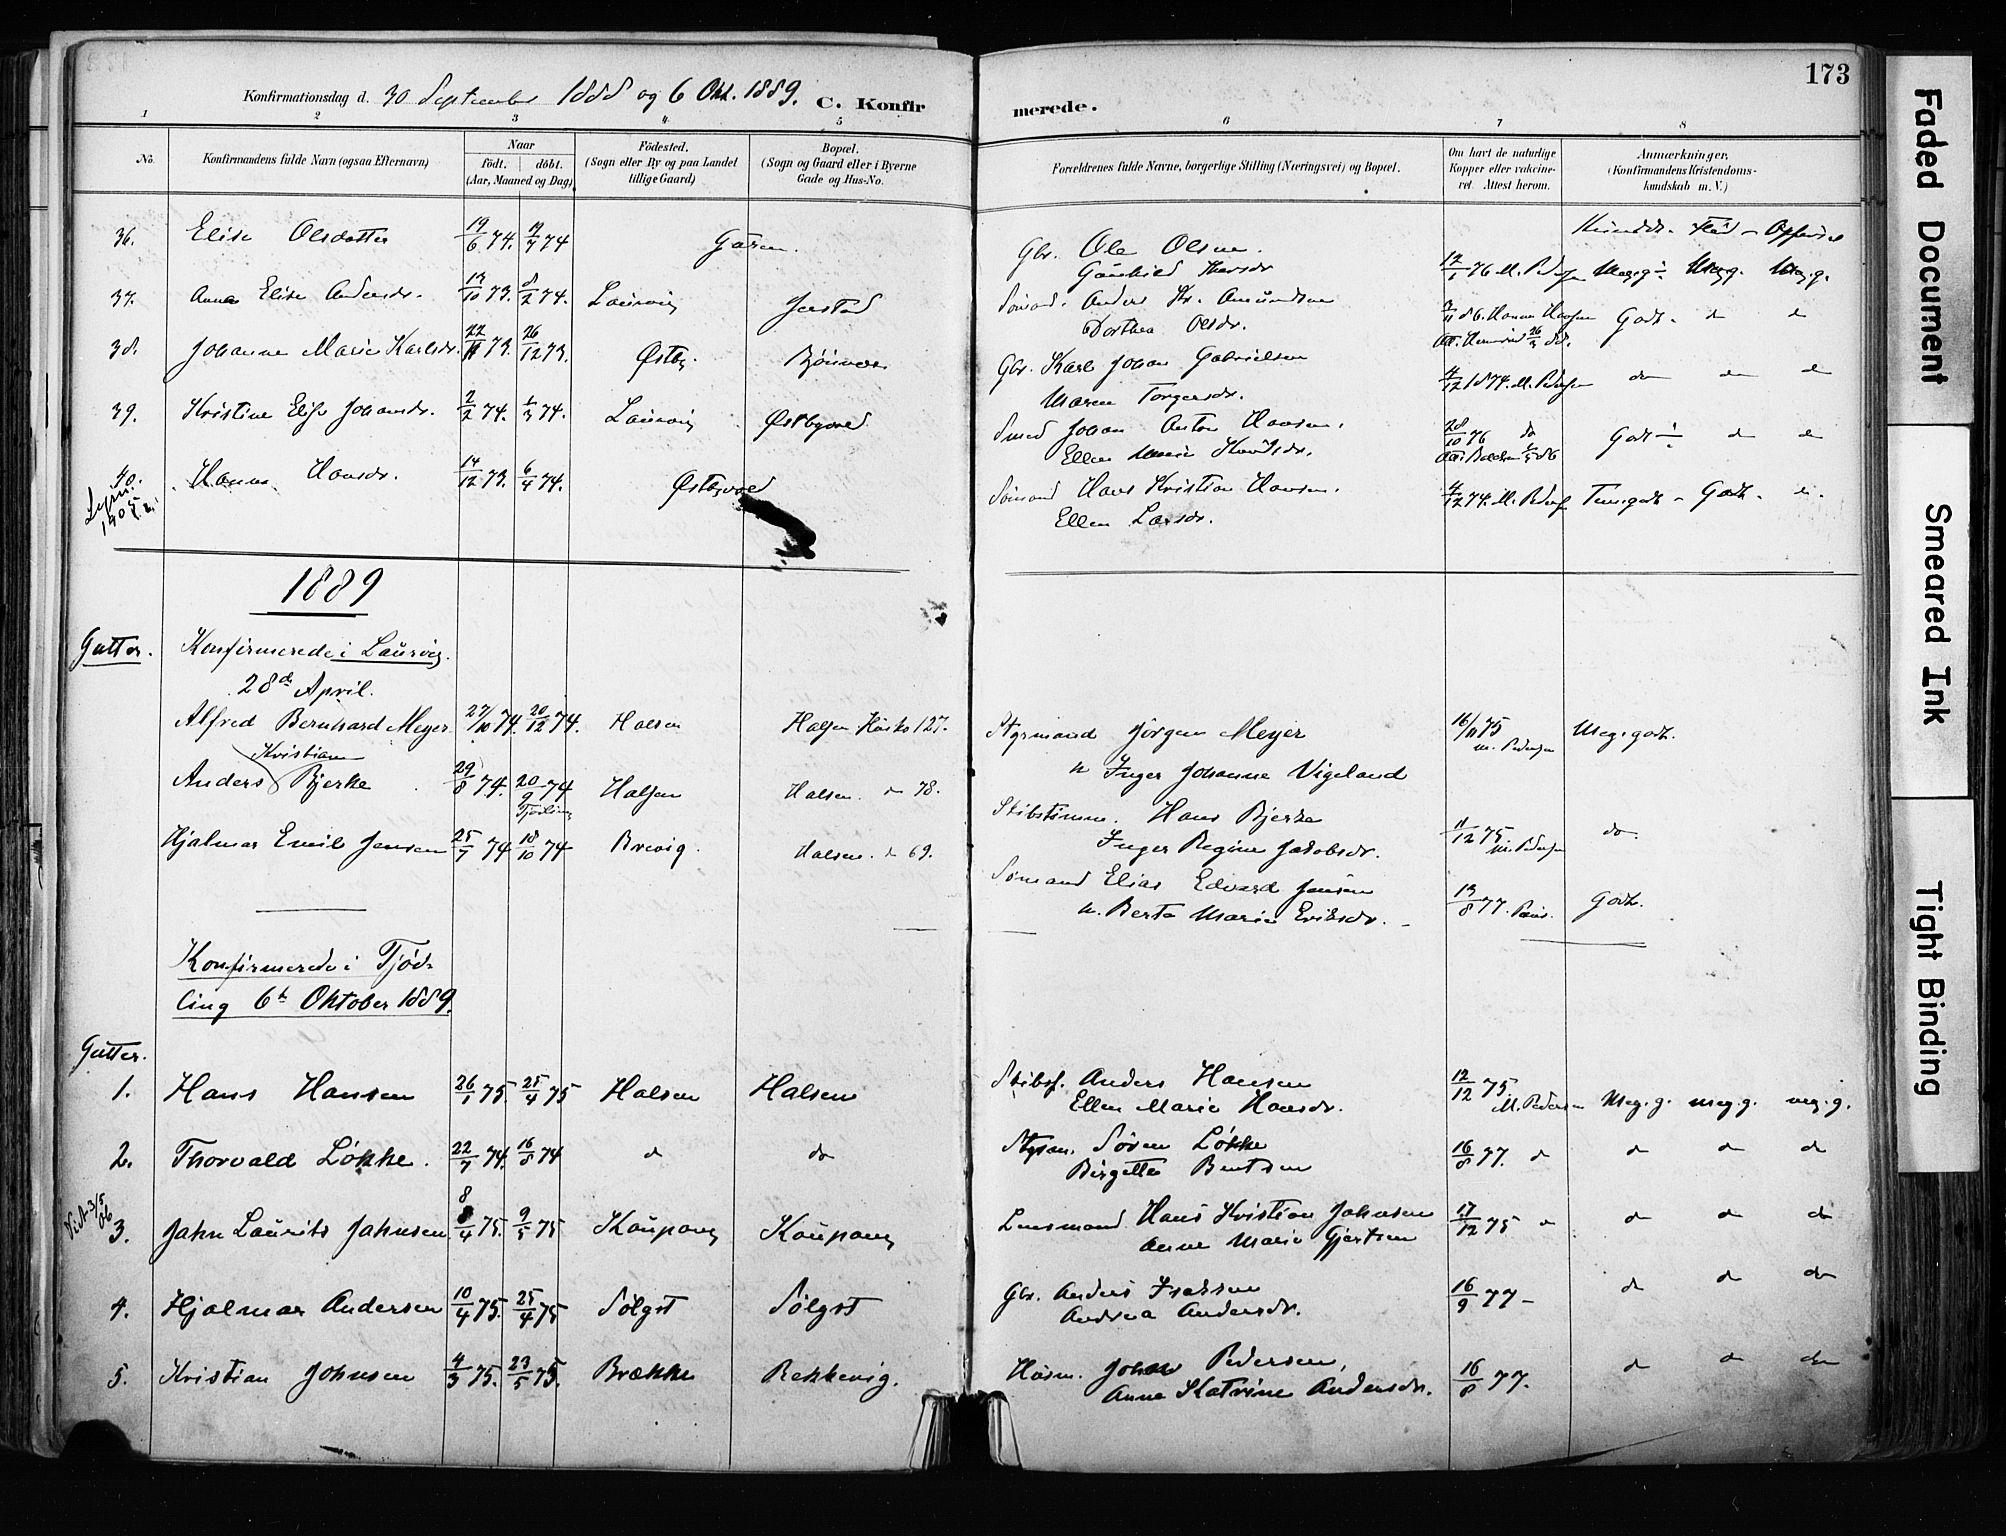 173
Konfirmationsdag d. 30 September 1888 og 6 Okt. 1889. C. Konfir
merede.
1 2 3 4 5 6 7 8
No. Konfirmandens fulde Navn (ogsaa Efternavn) Naar Födt. döbt. (Aar, Maaned og Dag) Födested. (Sogn eller By og paa Landet tillige Gaard) Bopæl. (Sogn og Gaard eller i Byerne Gade og Hus-No.
Forældrenes fulde Navne, borgerlige Stilling (Næringsvei) og Bopæl. Om havt de naturlige Kopper eller vakcineret. Attest herom. Anmærkninger, (Konfirmandens Kristendomskundskab m. V.)
Kundsk. Flid Opførsel
36. Elise Olsdatter 19/6 74. 12/7 74 Gåren. Gbr. Ole Olsen.
12/1 76 M. Meg.g ÷ Meg.g. Meg.g.
37. Anna Elise Andersdr. 13/10 73. 8/2 74. Laurvig Jerstad Sømand. Anders Kr. Amundsen
Dorthea Olsdr.
Godt. d d
38. Johanne Marie Karlsdr. 22/11 73. 26/12 73. Østby. Bjønnes Gbr. Karl Johan Gabrielsen
Maren Torgersdr.
4/12 1874. M. Pedersen do do d
39. Kristine Elise Johansdr. 2/2 74. 1/3 74. Laurvig Østbyved Smed Johan Anton Hansen,
Ellen Marie Knudsdr.
28/10 76 do Godt ÷ d d
40. Hanna Hansdr. 14/12 73. 6/4 74. Østbyved Sømand Hans Kristian Hansen.
Ellen Larsdr.
4/12 74. M. Pedersen Tem.godt - Godt. d.
1889
Gutter. Konfirmerede i Laurvig.
28de April.
Alfred Bernhard Meyer 27/10 74. 20/12 74. Halsen Halsen Husko 127. Styrmand Jörgen Meyer
n Inger Johanne Vigeland
16/11 75 M. Pedersen Meg. godt.
Kristian
Anders Bjerke 29/8 74. 20/9 74 Tjødling Halsen Halsen. d 78. Skibstømm. Hans Bjerke
Inger Regine Jakobsdr.
11/12 75 M. Pedersen do.
Hjalmar Emil Jensen 25/7 74 18/10 74 Brevig. Halsen. d 69. Sømand Elias Edvard Jensen
n. Berte Marie Eriksdr.
13/8 77. Godt.
Konfirmerede i Tjød-
ling 6te Oktober 1889.
Gutter.
1. Hans Hansen 26/1 75. 25/4 75 Halsen Halsen Skibsf. Anders Hansen
Ellen Marie Hansdr.
12/12 75. M. Pedersen Meg.g. meg.g. meg.g.
2. Thorvald Løkke. 22/7 74. 16/8 74 d do Styrm. Sören Løkke
Birgitte Bentsen
16/8 77. d d d d
Vidt 3/5 06
3. Jahn Laurits Jahnsen 8/4 75. 9/5 75 Kaupang Kaupang Lensmand Hans Kristian Jahnsen
Anne Marie Gjertsen
17/12 75 d d d d
4. Hjalmar Andersen 10/4 75. 25/4 75 Sølgst Sølgst Gbr. Anders Isaksen
Andrea Andersdr.
16/9 77 - d d d
5. Kristian Johnsen 4/3 75. 23/5 75. Brække Rekkevig. Husm. Johan Pedersen,
Anne Katrine Andersdr.
16/8 77. d d d
Faded Document
Smeared Ink
Tight Binding